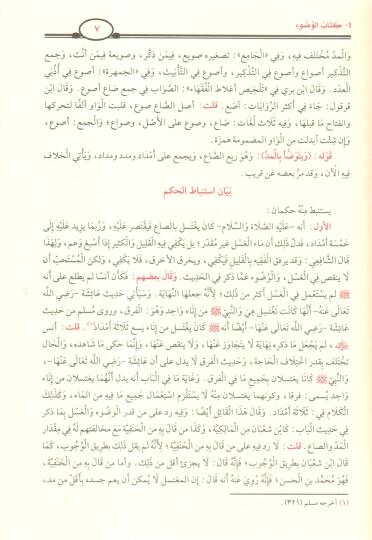 ٤- كتاب الوضوء
٧
والمد مختلف فيه، وفي «الجامع»: تصغيره صويع، فيمن ذكر، وصويعة فيمن أنث، وجمع
التذكير أصواع وأصوع في التذكير، وأصوع في التأنيث، وفي «الجمهرة»: أصوع في أدنى
العدد. وقال ابن بري في «تلخيص أغلاط الفقهاء»: الصواب في جمع صاع أصوع. وقال ابن
قرقول: جاء في أكثر الروايات: آصع. قلت: أصل الصاع صوع، قلبت الواو ألفا لتحركها
وانفتاح ما قبلها، وفيه ثلاث لغات: صاع، وصوع على الأصل، وصواع؛ والجمع: أصوع،
وإن شئت أبدلت من الواو المضمومة همزة.
قوله: (ويتوضأ بالمد): وهو ربع الصاع، ويجمع على أمداد ومدد ومداد، ويأتي الخلاف
فيه الآن، وقد مر بعضه عن قريب.
بيان استنباط الحكم
يستنبط منه حكمان:
الأول: أنه -عليه الصلاة والسلام- كان يغتسل بالصاع فيقتصر عليه، وربما يزيد عليه إلى
خمسة أمداد، فدل ذلك أن ماء الغسل غير مقدر؛ بل يكفي فيه القليل والكثير إذا أسبغ وعم، ولهذا
قال الشافعي: وقد يرفق الفقيه بالقليل فيكفي، ويخرق الأخرق، فلا يكفي، ولكن المستحب أن
لا ينقص في الغسل، والوضوء عما ذكر في الحديث. وقال بعضهم: فكأن أنسا لم يطلع على أنه
ﷺ لم يستعمل في الغسل أكثر من ذلك؛ لأنه جعلها النهاية. وسيأتي حديث عائشة -رضي الله
تعالى عنه- أنها كانت تغتسل هي والنبي ﷺ من إناء واحد وهو: الفرق، وروى مسلم من حديث
عائشة -رضي الله تعالى عنها- أيضا أنه ﷺ كان يغتسل من إناء يسع ثلاثة أمداد(١). قلت: أنس
، لم يجعل ما ذكره نهاية لا يتجاوز عنها، ولا ينقص عنها، وإنما حكى ما شاهده، والحال
تختلف بقدر اختلاف الحاجة، وحديث الفرق لا يدل على أن عائشة -رضي الله تعالى عنها-،
والنبي ﷺ كانا يغتسلان بجميع ما في الفرق. وغاية ما في الباب أنه يدل أنهما يغتسلان من إناء
واحد يسمى: فرقا، وكونهما يغتسلان منه لا يستلزم استعمال جميع ما فيه من الماء، وكذلك
الكلام في: ثلاثة أمداد. وقال هذا القائل أيضا: وفيه رد على من قدر الوضوء والغسل بما ذكر
في حديث الباب: كابن شعبان من المالكية، وكذا من قال به من الحنفية مع مخالفتهم له في مقدار
المد والصاع. قلت: لا رد فيه على من قال به من الحنفية؛ لأنه لم يقل ذلك بطريق الوجوب، كما
قال ابن شعبان بطريق الوجوب؛ فإنه قال: لا يجزئ أقل من ذلك. وأما من قال به من الحنفية،
فهو محمد بن الحسن؛ فإنه روي عنه أنه قال: إن المغتسل لا يمكن أن يعم جسده بأقل من مد،
(١) أخرجه مسلم (٣٢١).